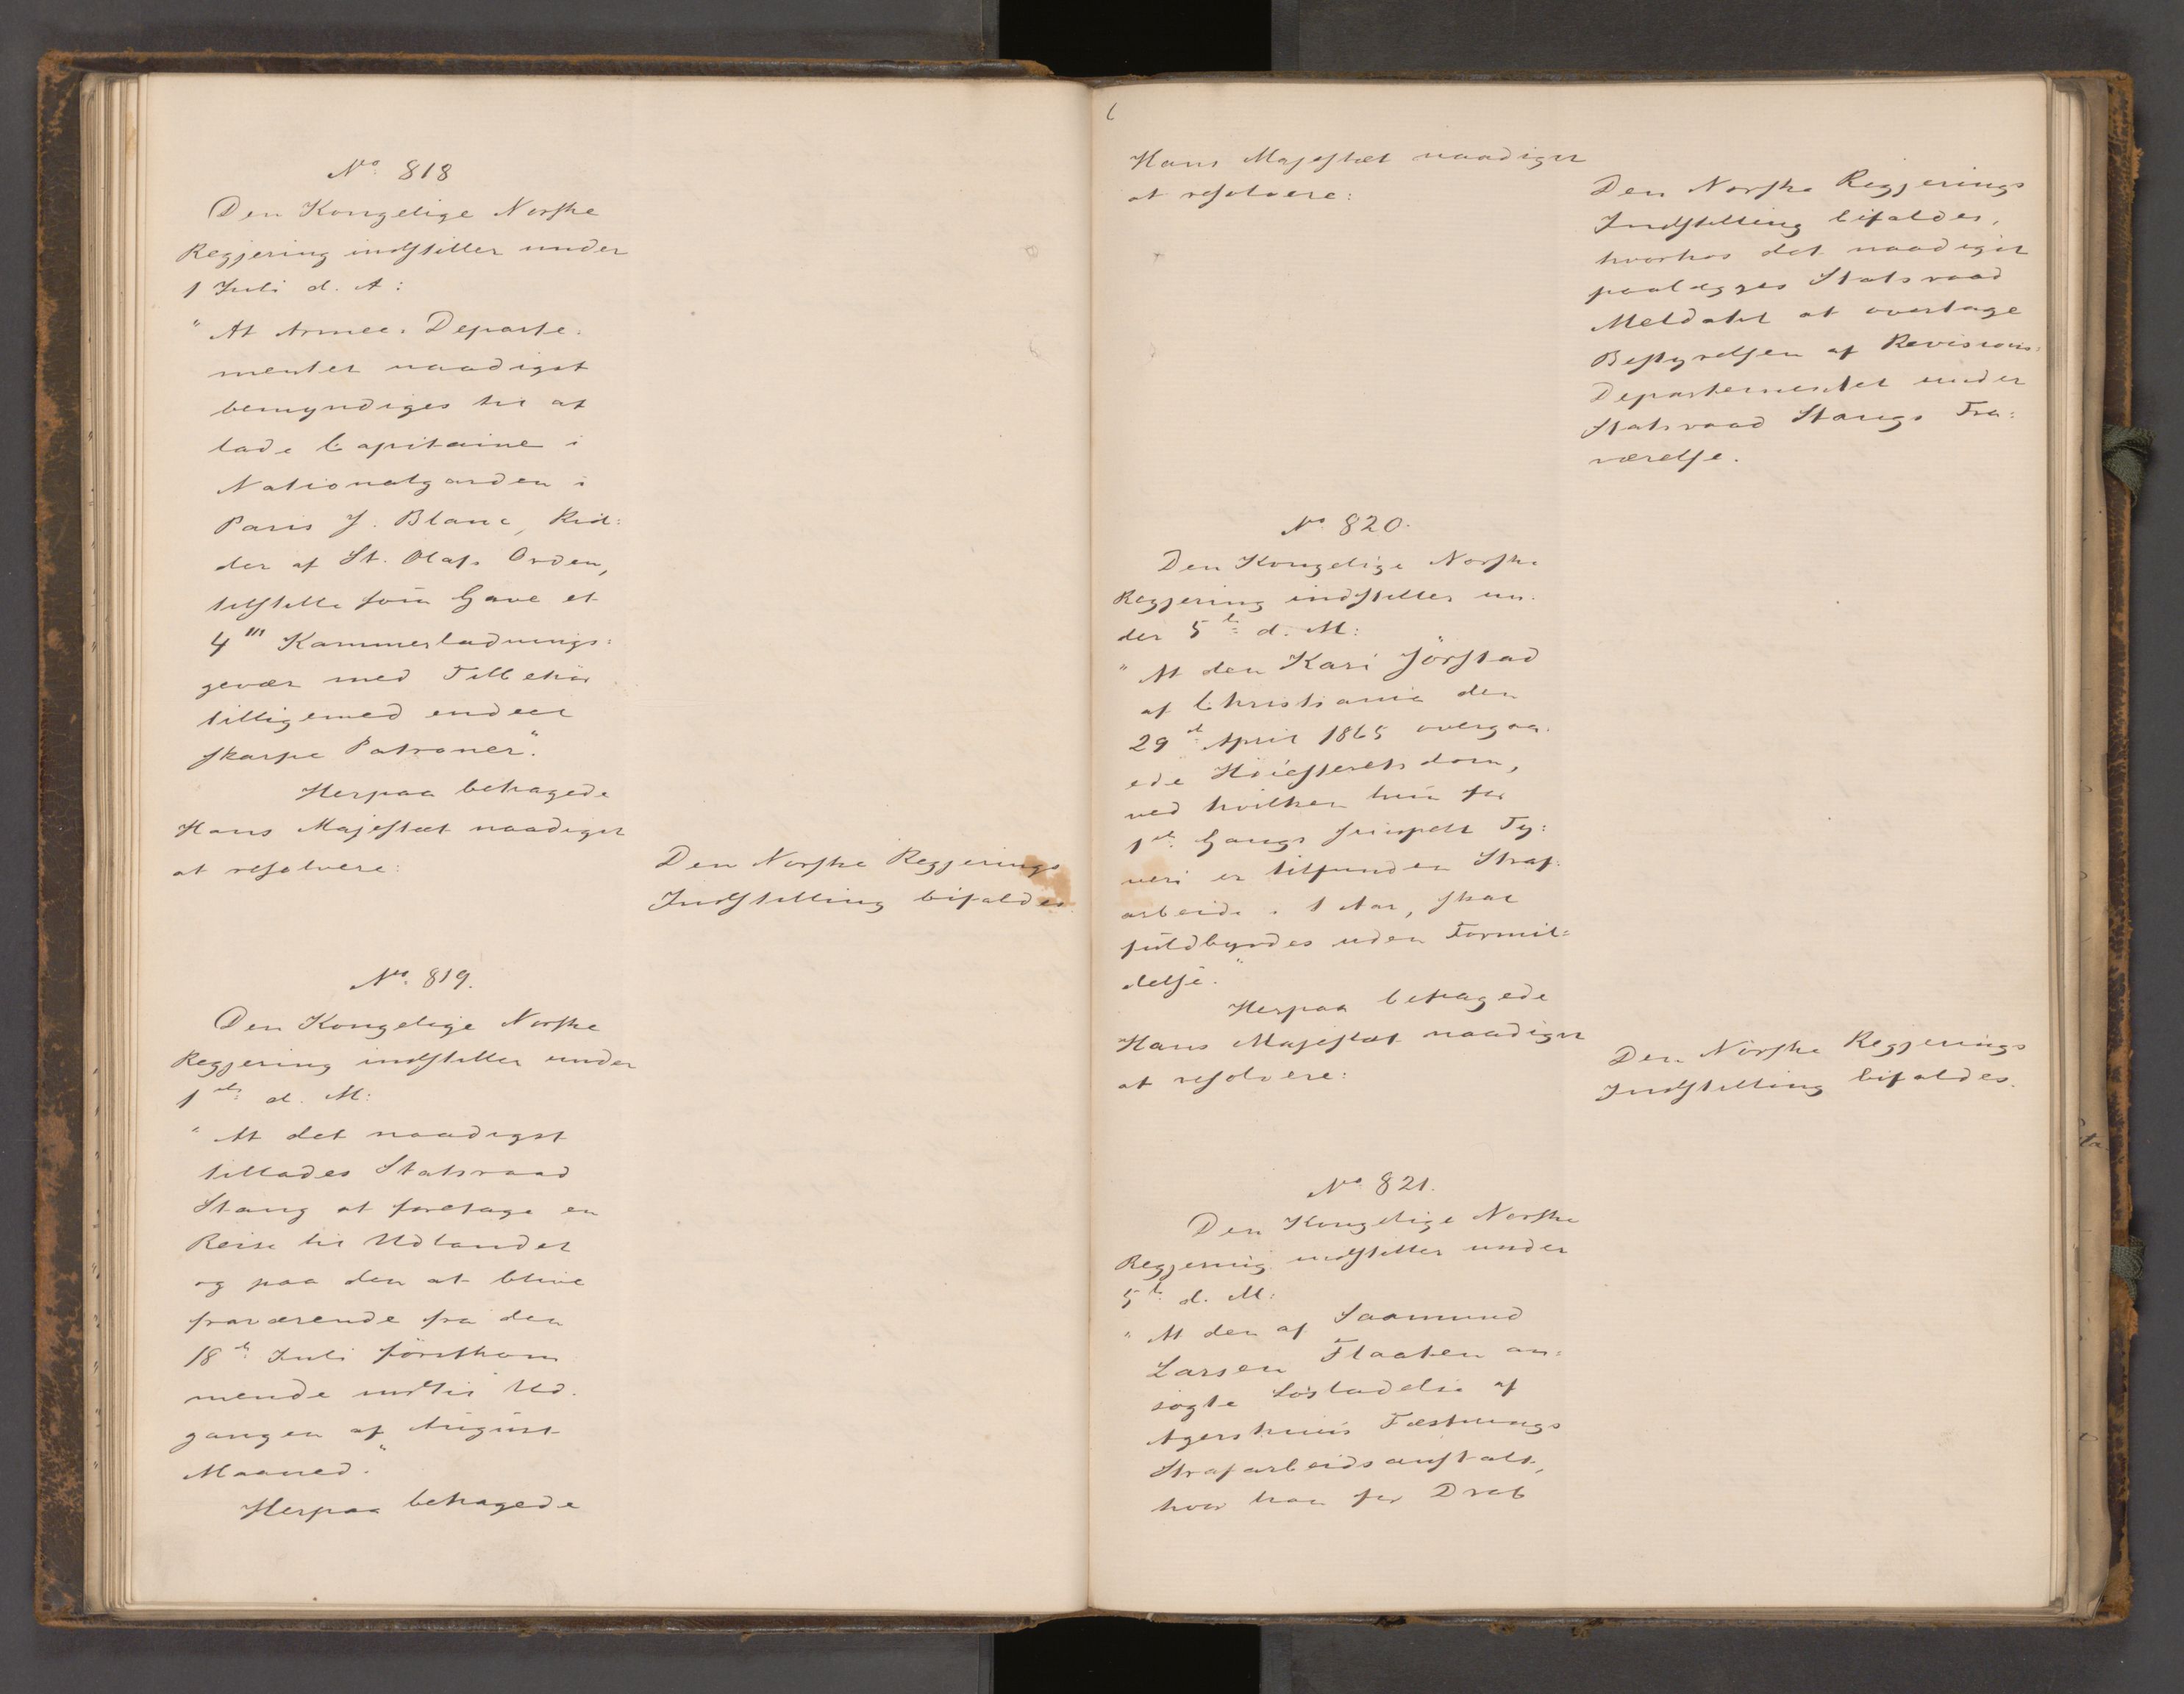 No. 818
Den Kongelige Norske
Regjering indstiller under
1 Juli d. A:
"At Armee-Departe-
mentet naadigst
bemyndiges til at
lade Capitaine i
Nationalgarden i
Paris J. Blanc, Rid-
der af St. Olafs Orden,
tilstille som Gave et
4''' Kammerladnings-
gevær med Tilbehör
tilligemed endeel
skarpe Patroner".
Herpaa behagede
Hans Majestæt naadigst
at resolvere:
Den Norske Regjerings
Indstilling bifaldes.
No. 819.
Den Kongelige Norske
Regjering indstiller under
1ste d. M:
"At det naadigst
tillades Statsraad
Stang at foretage en
Reise til Udlandet
og paa den at blive
fraværende fra den
18de Juli förstkom-
mende indtil Ud-
gangen af August
Maaned."
Herpaa behagede
Hans Majestæt naadigst
at resolvere:
Den Norske Regjerings
Indstilling bifaldes,
hvorhos det naadigst
paalægges Statsraad
Meldahl at overtage
Bestyrelsen af Revisions-
Departementet under
Statsraad Stangs Fra-
værelse.
No. 820.
Den Kongelige Norske
Regjering indstiller un-
der 5te d. M:
"At den Kari Jörstad
af Christiania den
29de April 1865 overgaa-
ede Höiesteretsdom,
ved hvilken hun for
1ste Gangs simpelt Ty-
veri er tilfunden Straf-
arbeide i 1 Aar, skal
fuldbyrdes uden Formil-
delse."
Herpaa behagede
Hans Majestæt naadigst
at resolvere:
Den Norske Regjerings
Indstilling bifaldes.
No. 821.
Den Kongelige Norske
Regjering indstiller under
5te d. M:
"At den af Saamund
Larsen Flaaten an-
sögte Lösladelse af
Agershuus Fæstnings
Strafarbeidsanstalt,
hvor han for Drab